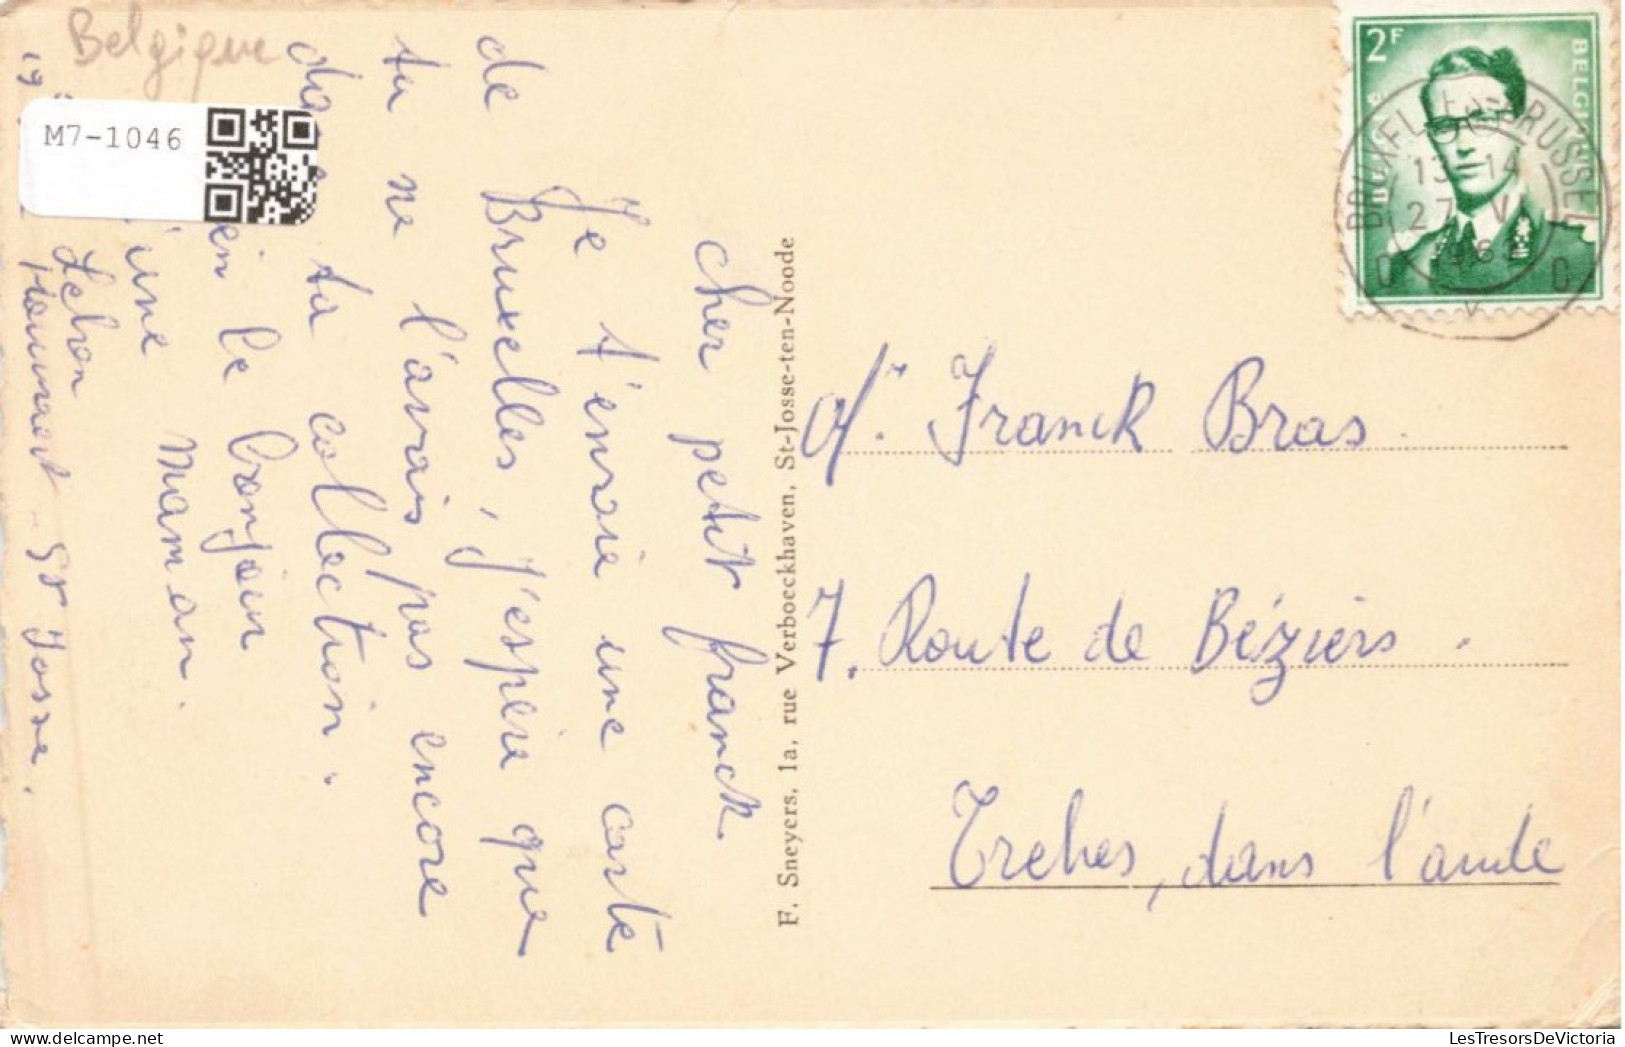 Belgique
M7-1046
Cher petit franck
Je t'envoie une carte
de Bruxelles, j'espère que
tu ne l'avais pas encore
ta collection.
le bonjour
maman.
Lebon
St Josse.
19
F. Sneyers, 1a, rue Verboeckhaven, St-Josse-ten-Noode
2F
BELGIQUE
BELGIË
BRUXELLES-BRUSSEL
13-14
27 V
1962
C C
Mr. Franck Bras.
7. Route de Béziers.
Trebes, dans l'aude
LesTresorsDeVictoria.com